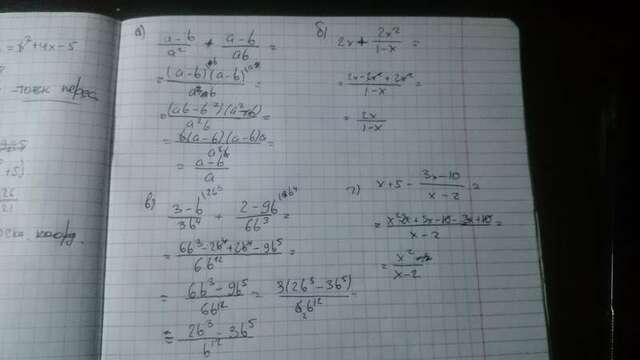 = x²+4x-5
точк перес
а) (a-b)/a² + (a-b)/ab =
= (a-b)(a-b)/a²b =
= (ab-b²)(a²-b)/a²b =
= b(a-b)(a-b)a/a²b =
= (a-b)/a
б) 2x + 2x²/(1-x) =
= (2x-2x²+2x²)/(1-x) =
= 2x/(1-x)
в) (3-b)/3b⁴ + (2-9b)/6b³ =
= (6b³-2b⁴+2b⁴-9b⁵)/6b¹² =
= (6b³-9b⁵)/6b¹² = 3(2b³-3b⁵)/6b¹² =
= (2b³-3b⁵)/b¹²
г) x+5 - (3x-10)/(x-2) =
= (x²-2x+5x-10-3x+10)/(x-2) =
= x²/(x-2)